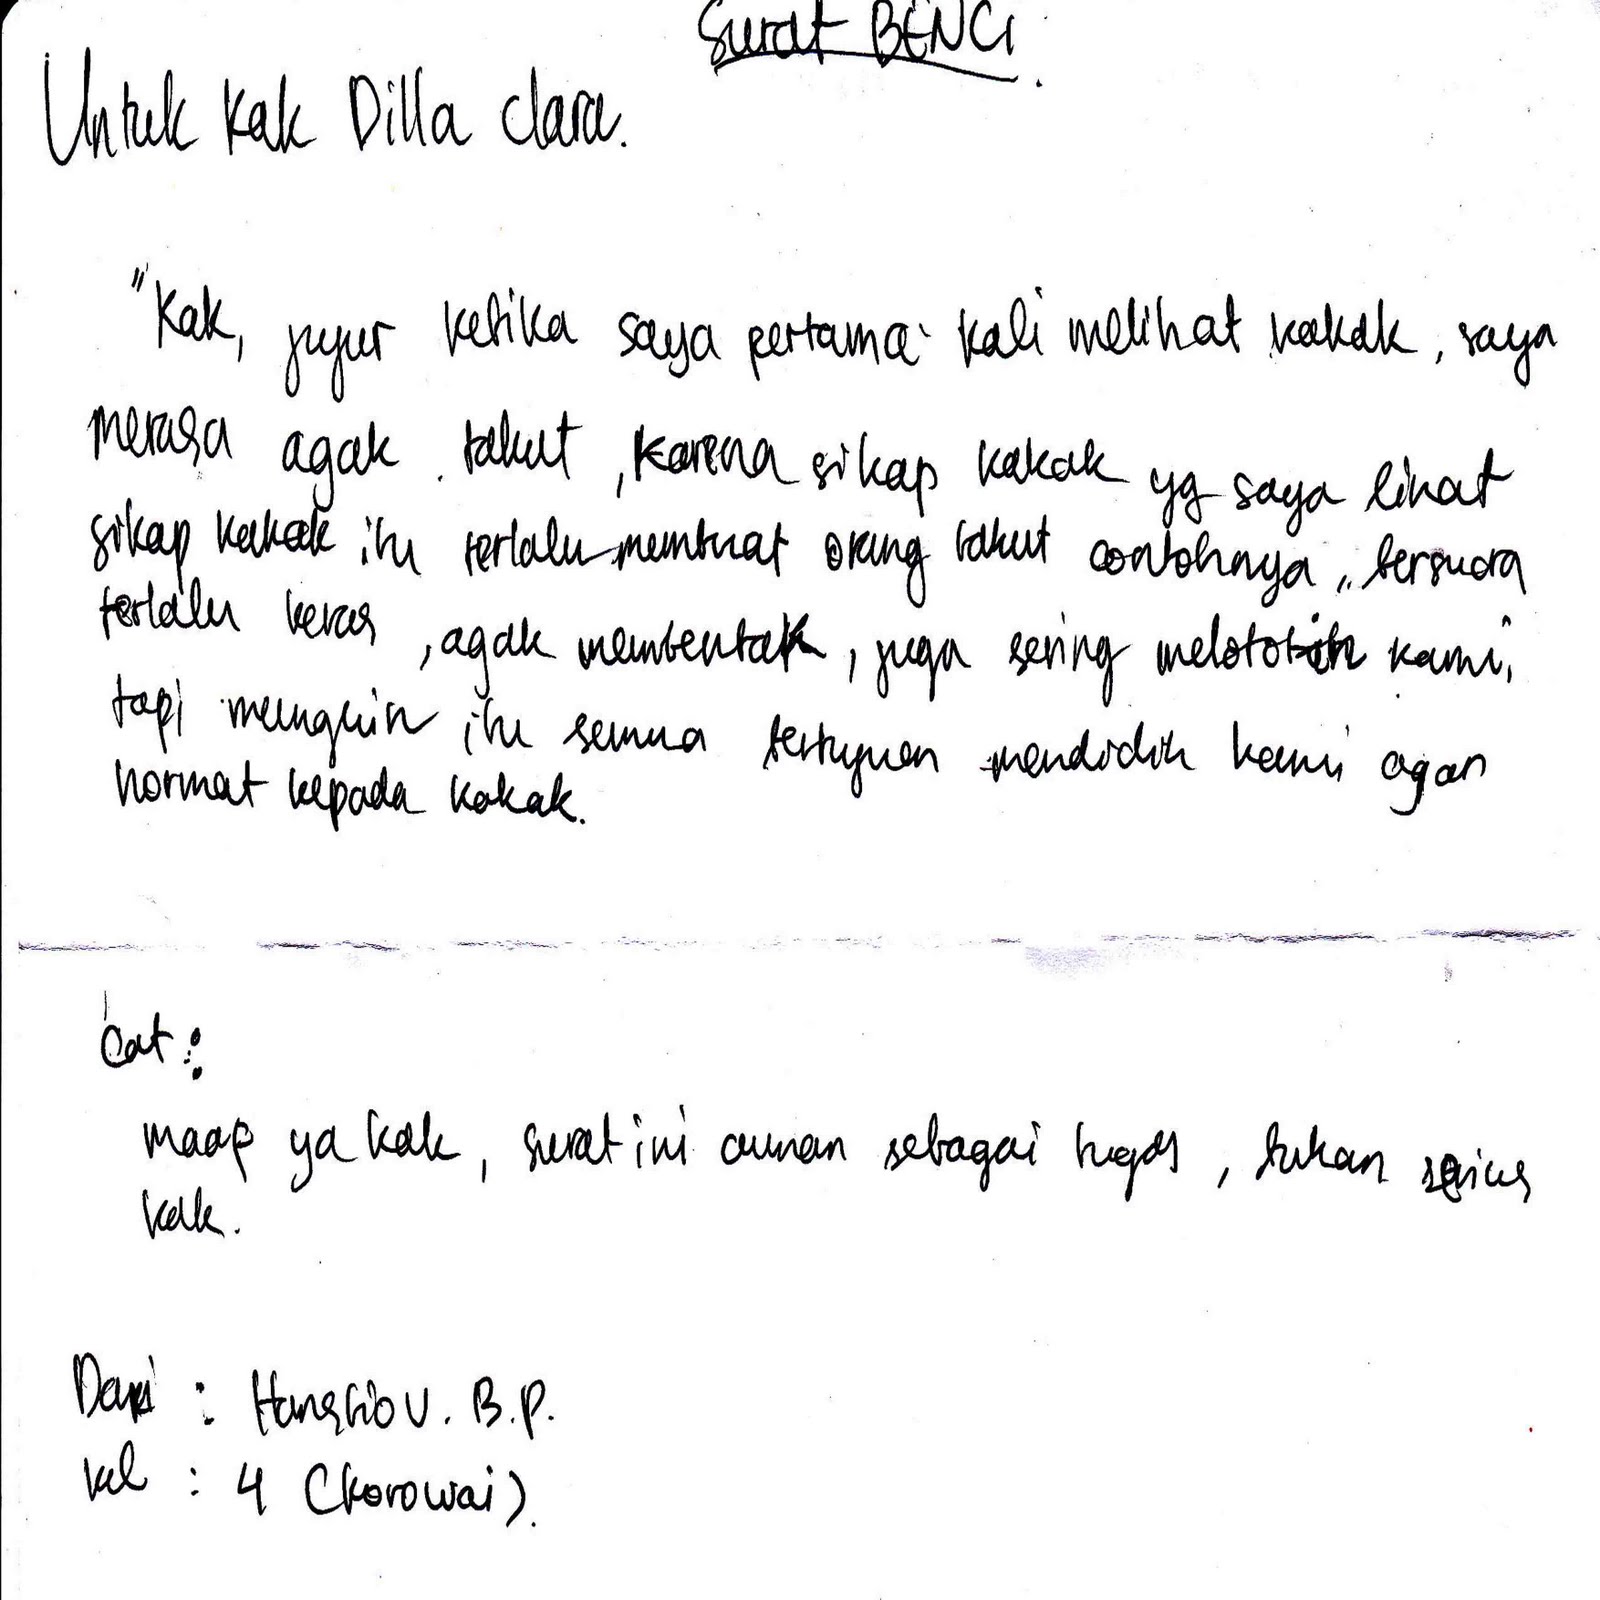 Surat BENCI.
Untuk Kak Dilla Clara.
"Kak, jujur ketika saya pertama kali melihat kakak, saya
merasa agak takut, karena sikap kakak yg saya lihat
sikap kakak itu terlalu membuat orang takut contohnya,, bersuara
terlalu keras, agak membentak, juga sering melototin kami,
tapi mungkin itu semua bertujuan mendidik kami agar
hormat kepada kakak.
Cat :
maap ya kak, surat ini cuman sebagai tugas, bukan serius
kak.
Dari : B.P.
kel : 4 (korowai).